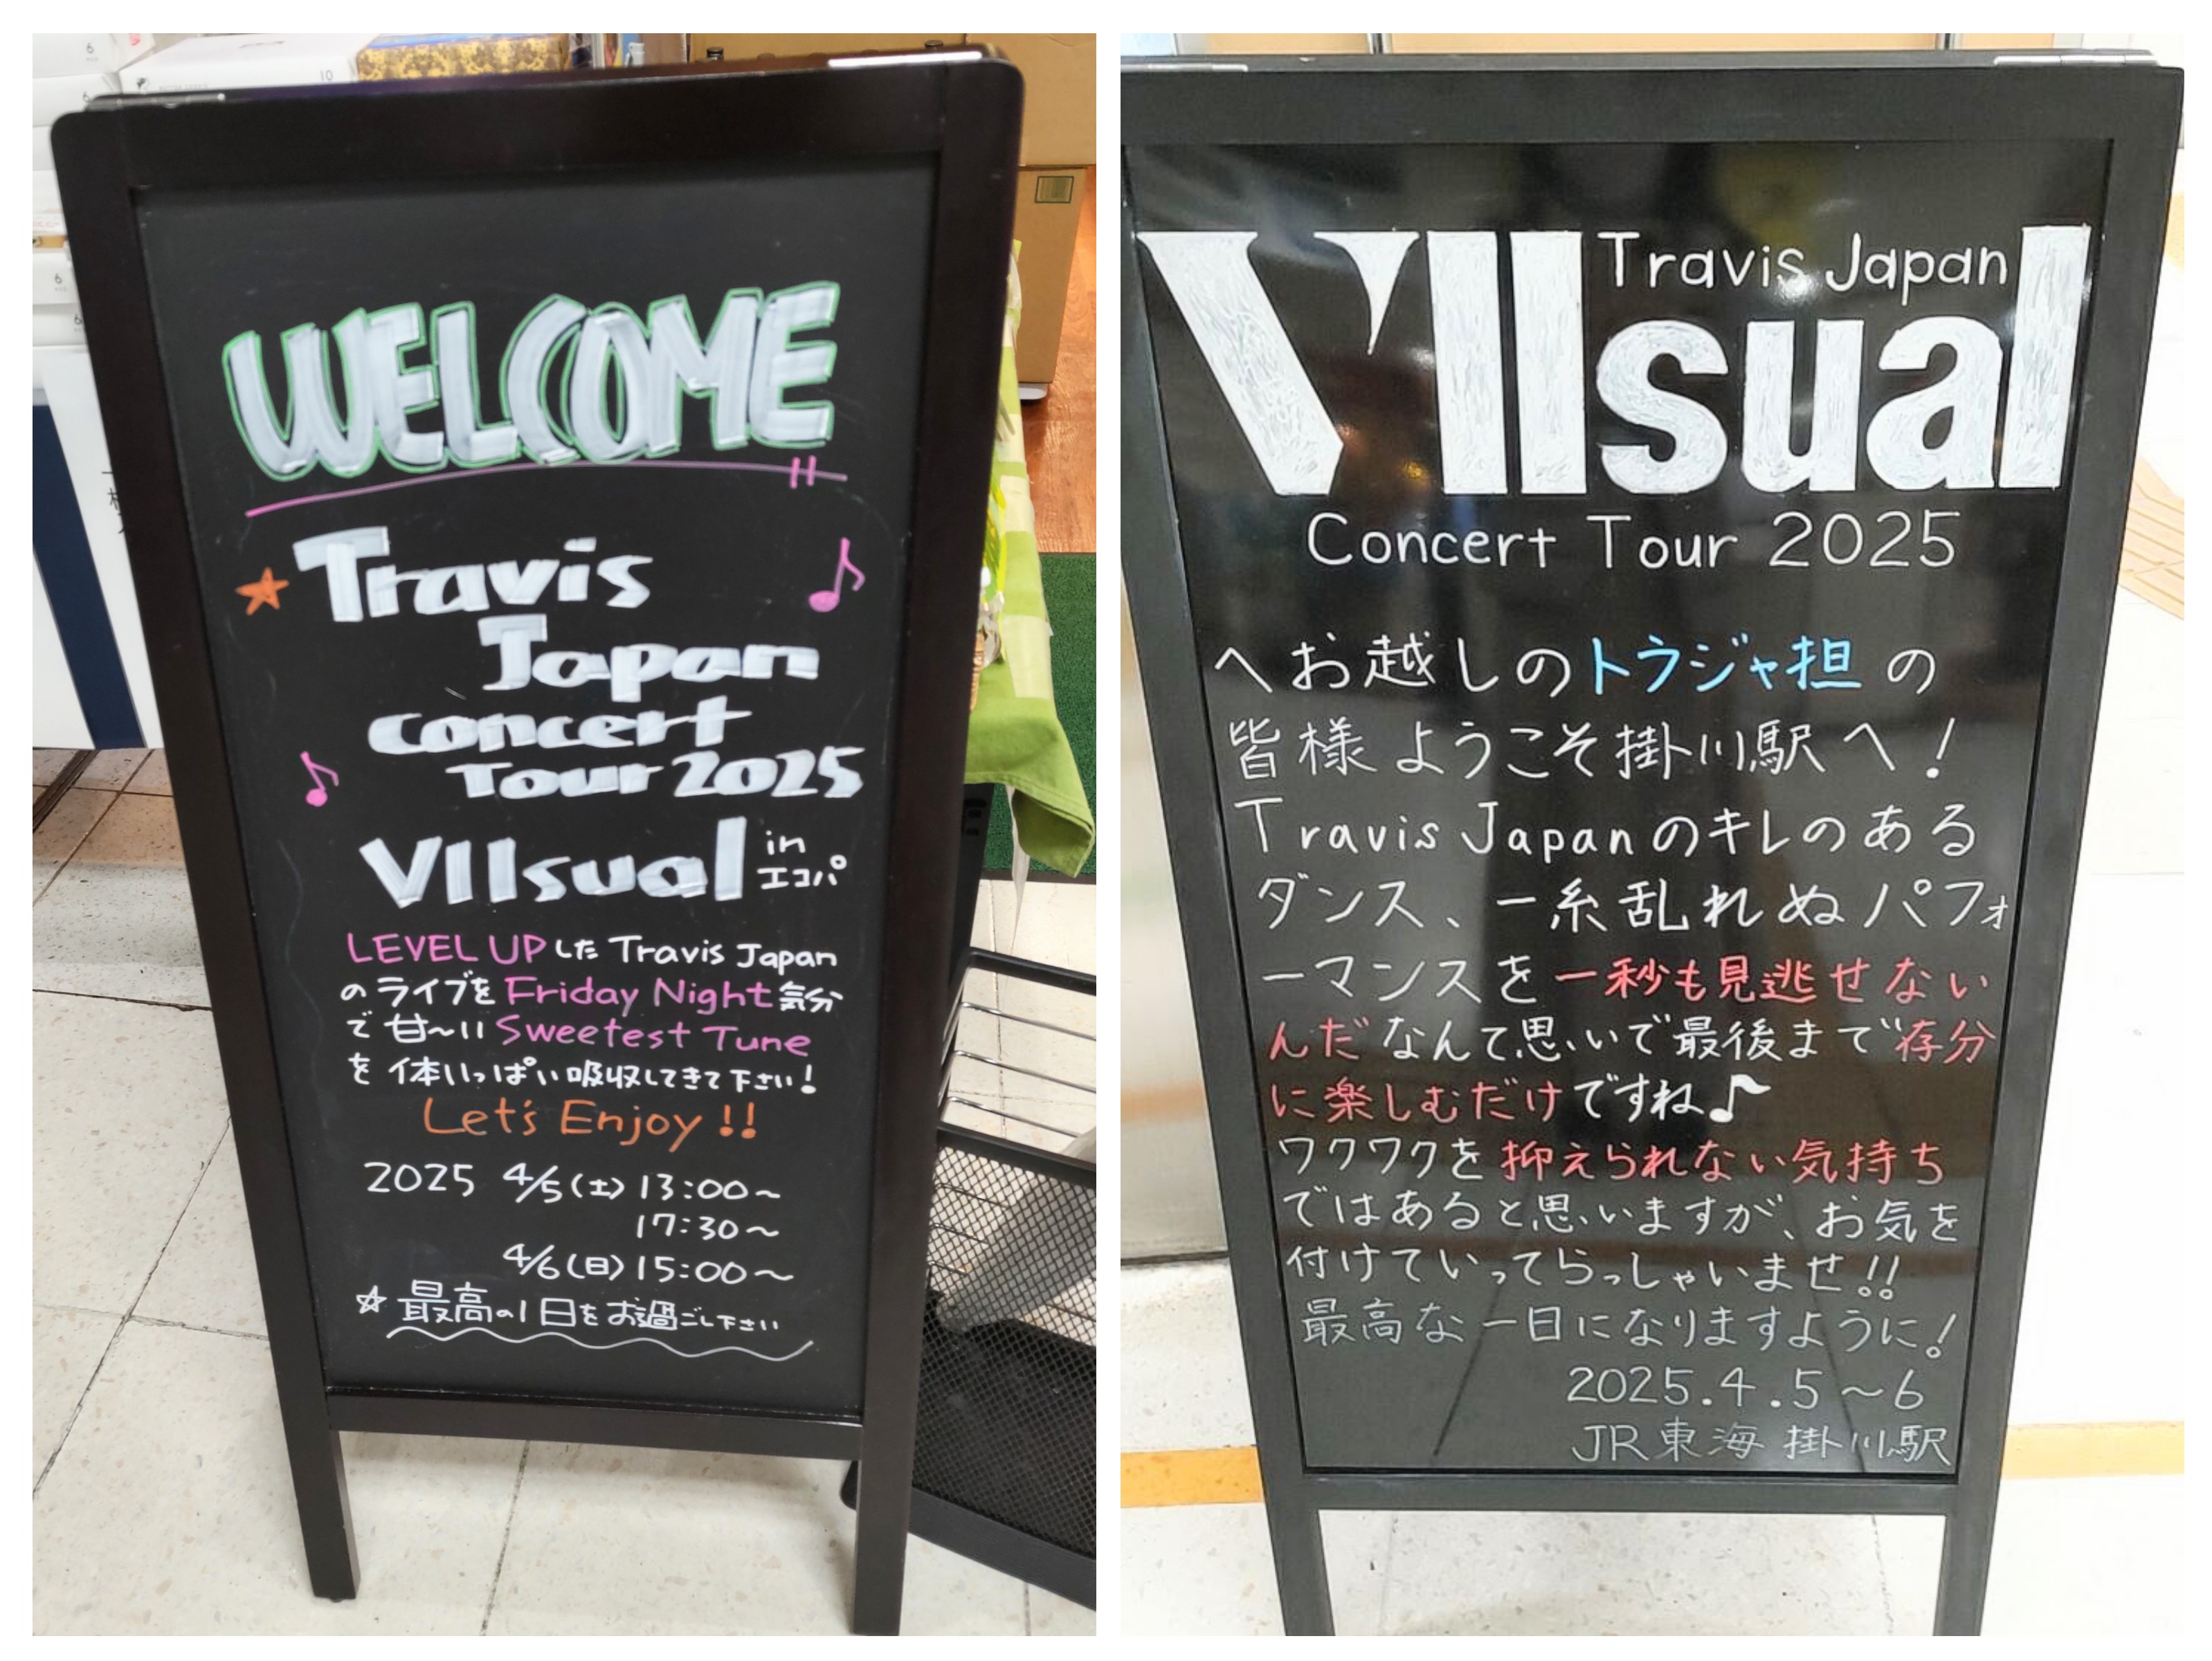 WELCOME
Travis
Japan
concert
Tour 2025
VIIsual in
エコパ
LEVEL UPした Travis Japan
のライブを Friday Night 気分
で 甘〜い Sweetest Tune
を 体いっぱい吸収してきて下さい!
Let's Enjoy!!
2025 4/5(土) 13:00〜
17:30〜
4/6(日) 15:00〜
☆最高の1日をお過ごし下さい
Travis Japan
VIIsual
Concert Tour 2025
へお越しのトラジャ担の
皆様ようこそ掛川駅へ!
Travis Japanのキレのある
ダンス、一糸乱れぬパフォ
ーマンスを一秒も見逃せない
んだなんて思いで最後まで存分
に楽しむだけですね♪
ワクワクを抑えられない気持ち
ではあると思いますが、お気を
付けていってらっしゃいませ!!
最高な一日になりますように!
2025.4.5〜6
JR東海 掛川駅